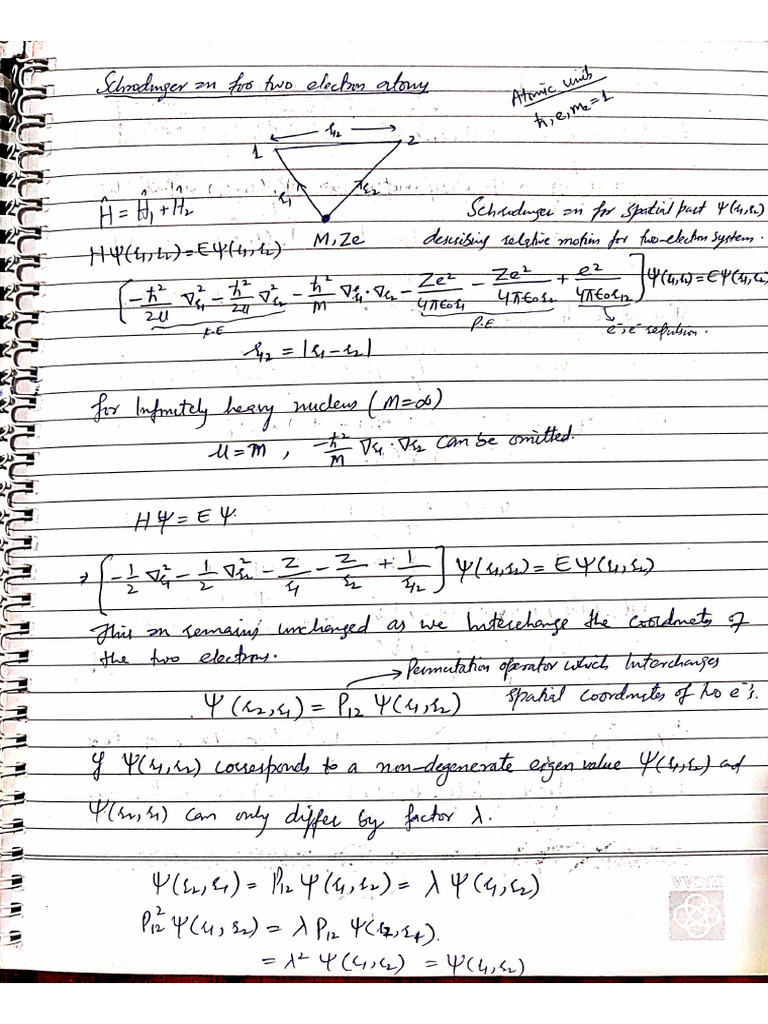 Schrodinger εn for two electron atoms
Atomic units
ħ, e, mₑ = 1
r₁₂
1 2
r₁ r₂
Ĥ = Ĥ₁ + Ĥ₂
M, Ze
Schrodinger εn for spatial part Ψ(r₁,r₂)
HΨ(r₁,r₂) = EΨ(r₁,r₂)
describing relative motion for two-electron system.
[-ħ²/2μ ∇²r₁ - ħ²/2μ ∇²r₂ - ħ²/M ∇r₁·∇r₂ - Ze²/4πε₀r₁ - Ze²/4πε₀r₂ + e²/4πε₀r₁₂] Ψ(r₁,r₂) = EΨ(r₁,r₂)
K.E P.E e⁻,e⁻ repulsion.
r₁₂ = |r₁ - r₂|
for Infinitely heavy nucleus (M=∞)
μ = m , -ħ²/M ∇r₁·∇r₂ can be omitted.
HΨ = EΨ.
⇒ [-1/2 ∇²r₁ - 1/2 ∇²r₂ - Z/r₁ - Z/r₂ + 1/r₁₂] Ψ(r₁,r₂) = EΨ(r₁,r₂)
This εn remains unchanged as we Interchange the coordinates of
the two electrons.
→ Permutation operator which Interchanges
Ψ(r₂,r₁) = P₁₂ Ψ(r₁,r₂) spatial coordinates of two e⁻s.
If Ψ(r₁,r₂) corresponds to a non-degenerate eigen value Ψ(r₁,r₂) and
Ψ(r₂,r₁) can only differ by factor λ.
Ψ(r₂,r₁) = P₁₂ Ψ(r₁,r₂) = λ Ψ(r₁,r₂)
P₁₂² Ψ(r₁,r₂) = λ P₁₂ Ψ(r₂,r₁).
= λ² Ψ(r₁,r₂) = Ψ(r₁,r₂)